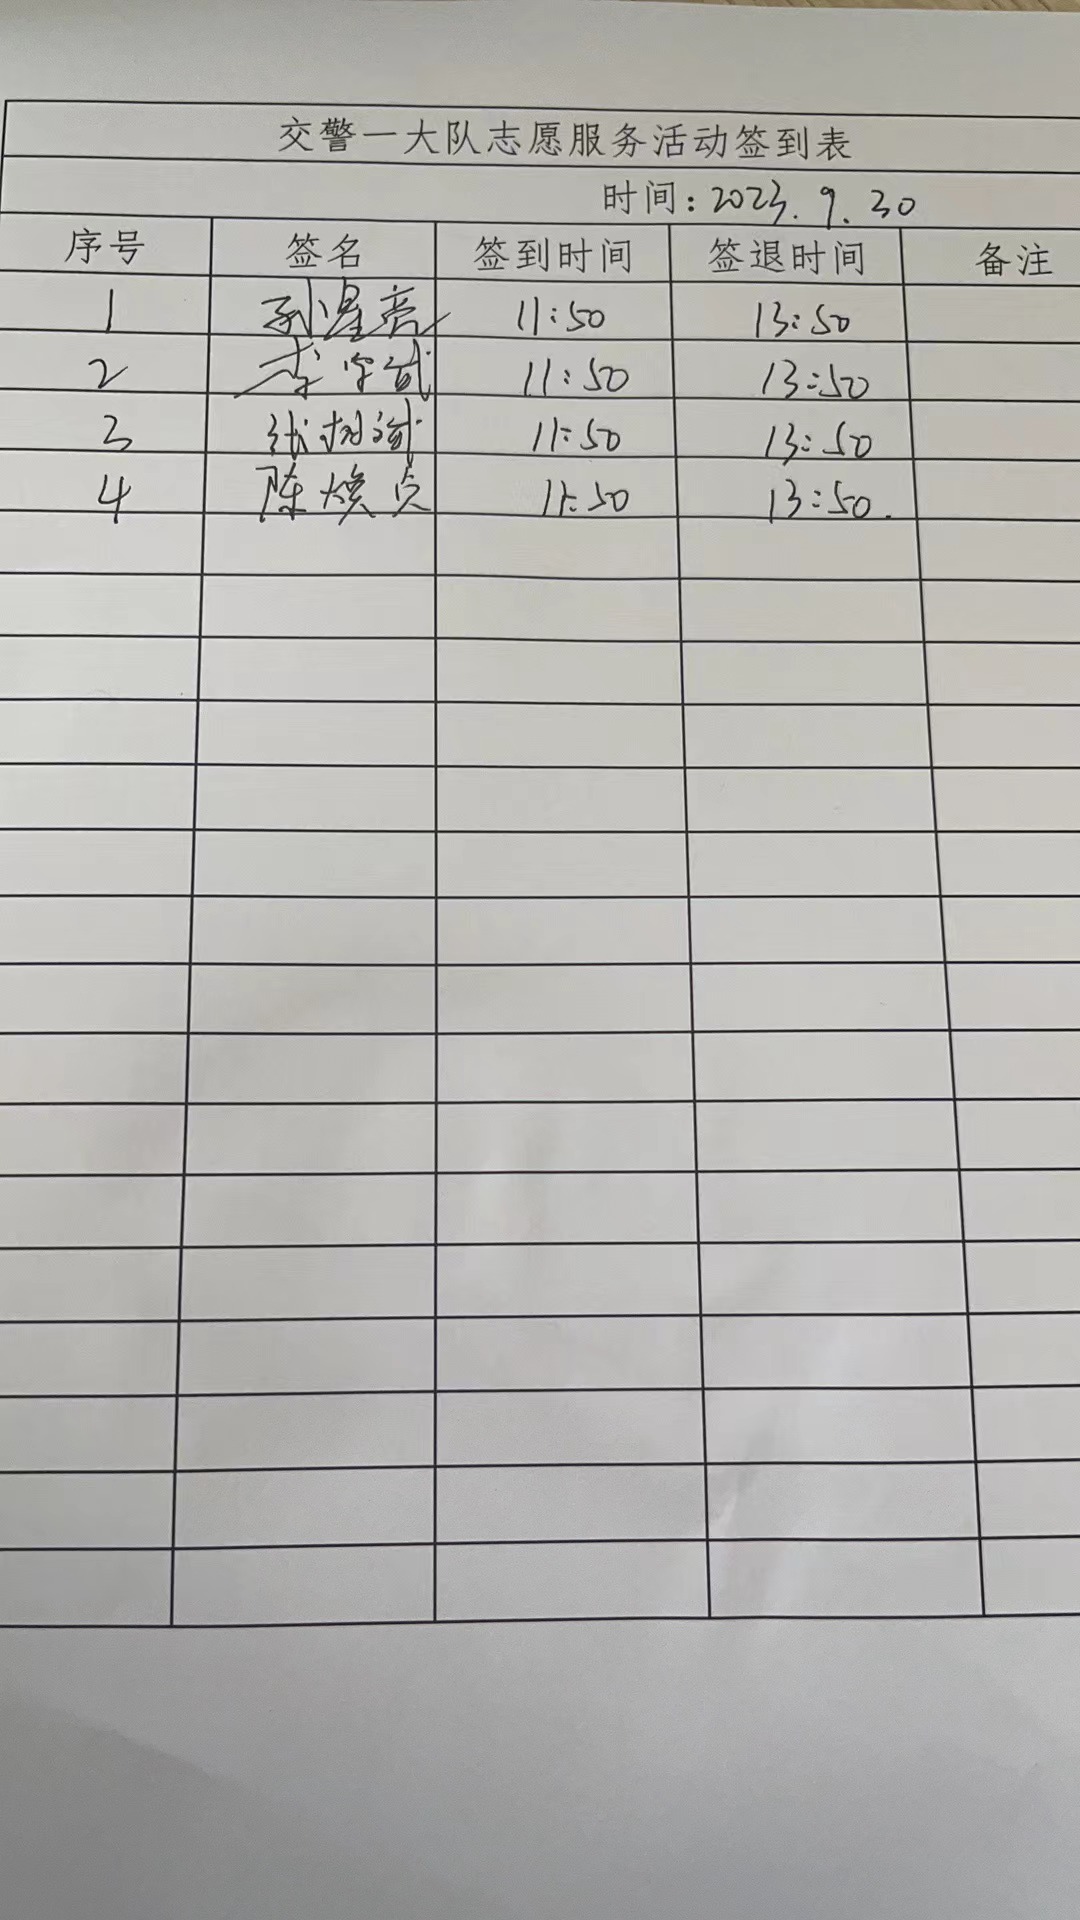 交警一大队志愿服务活动签到表
时间：2023.9.30
序号 签名 签到时间 签退时间 备注
1 孙星亮 11:50 13:50
2 李 11:50 13:50
3 张 11:50 13:50
4 陈焕贞 11:50 13:50.